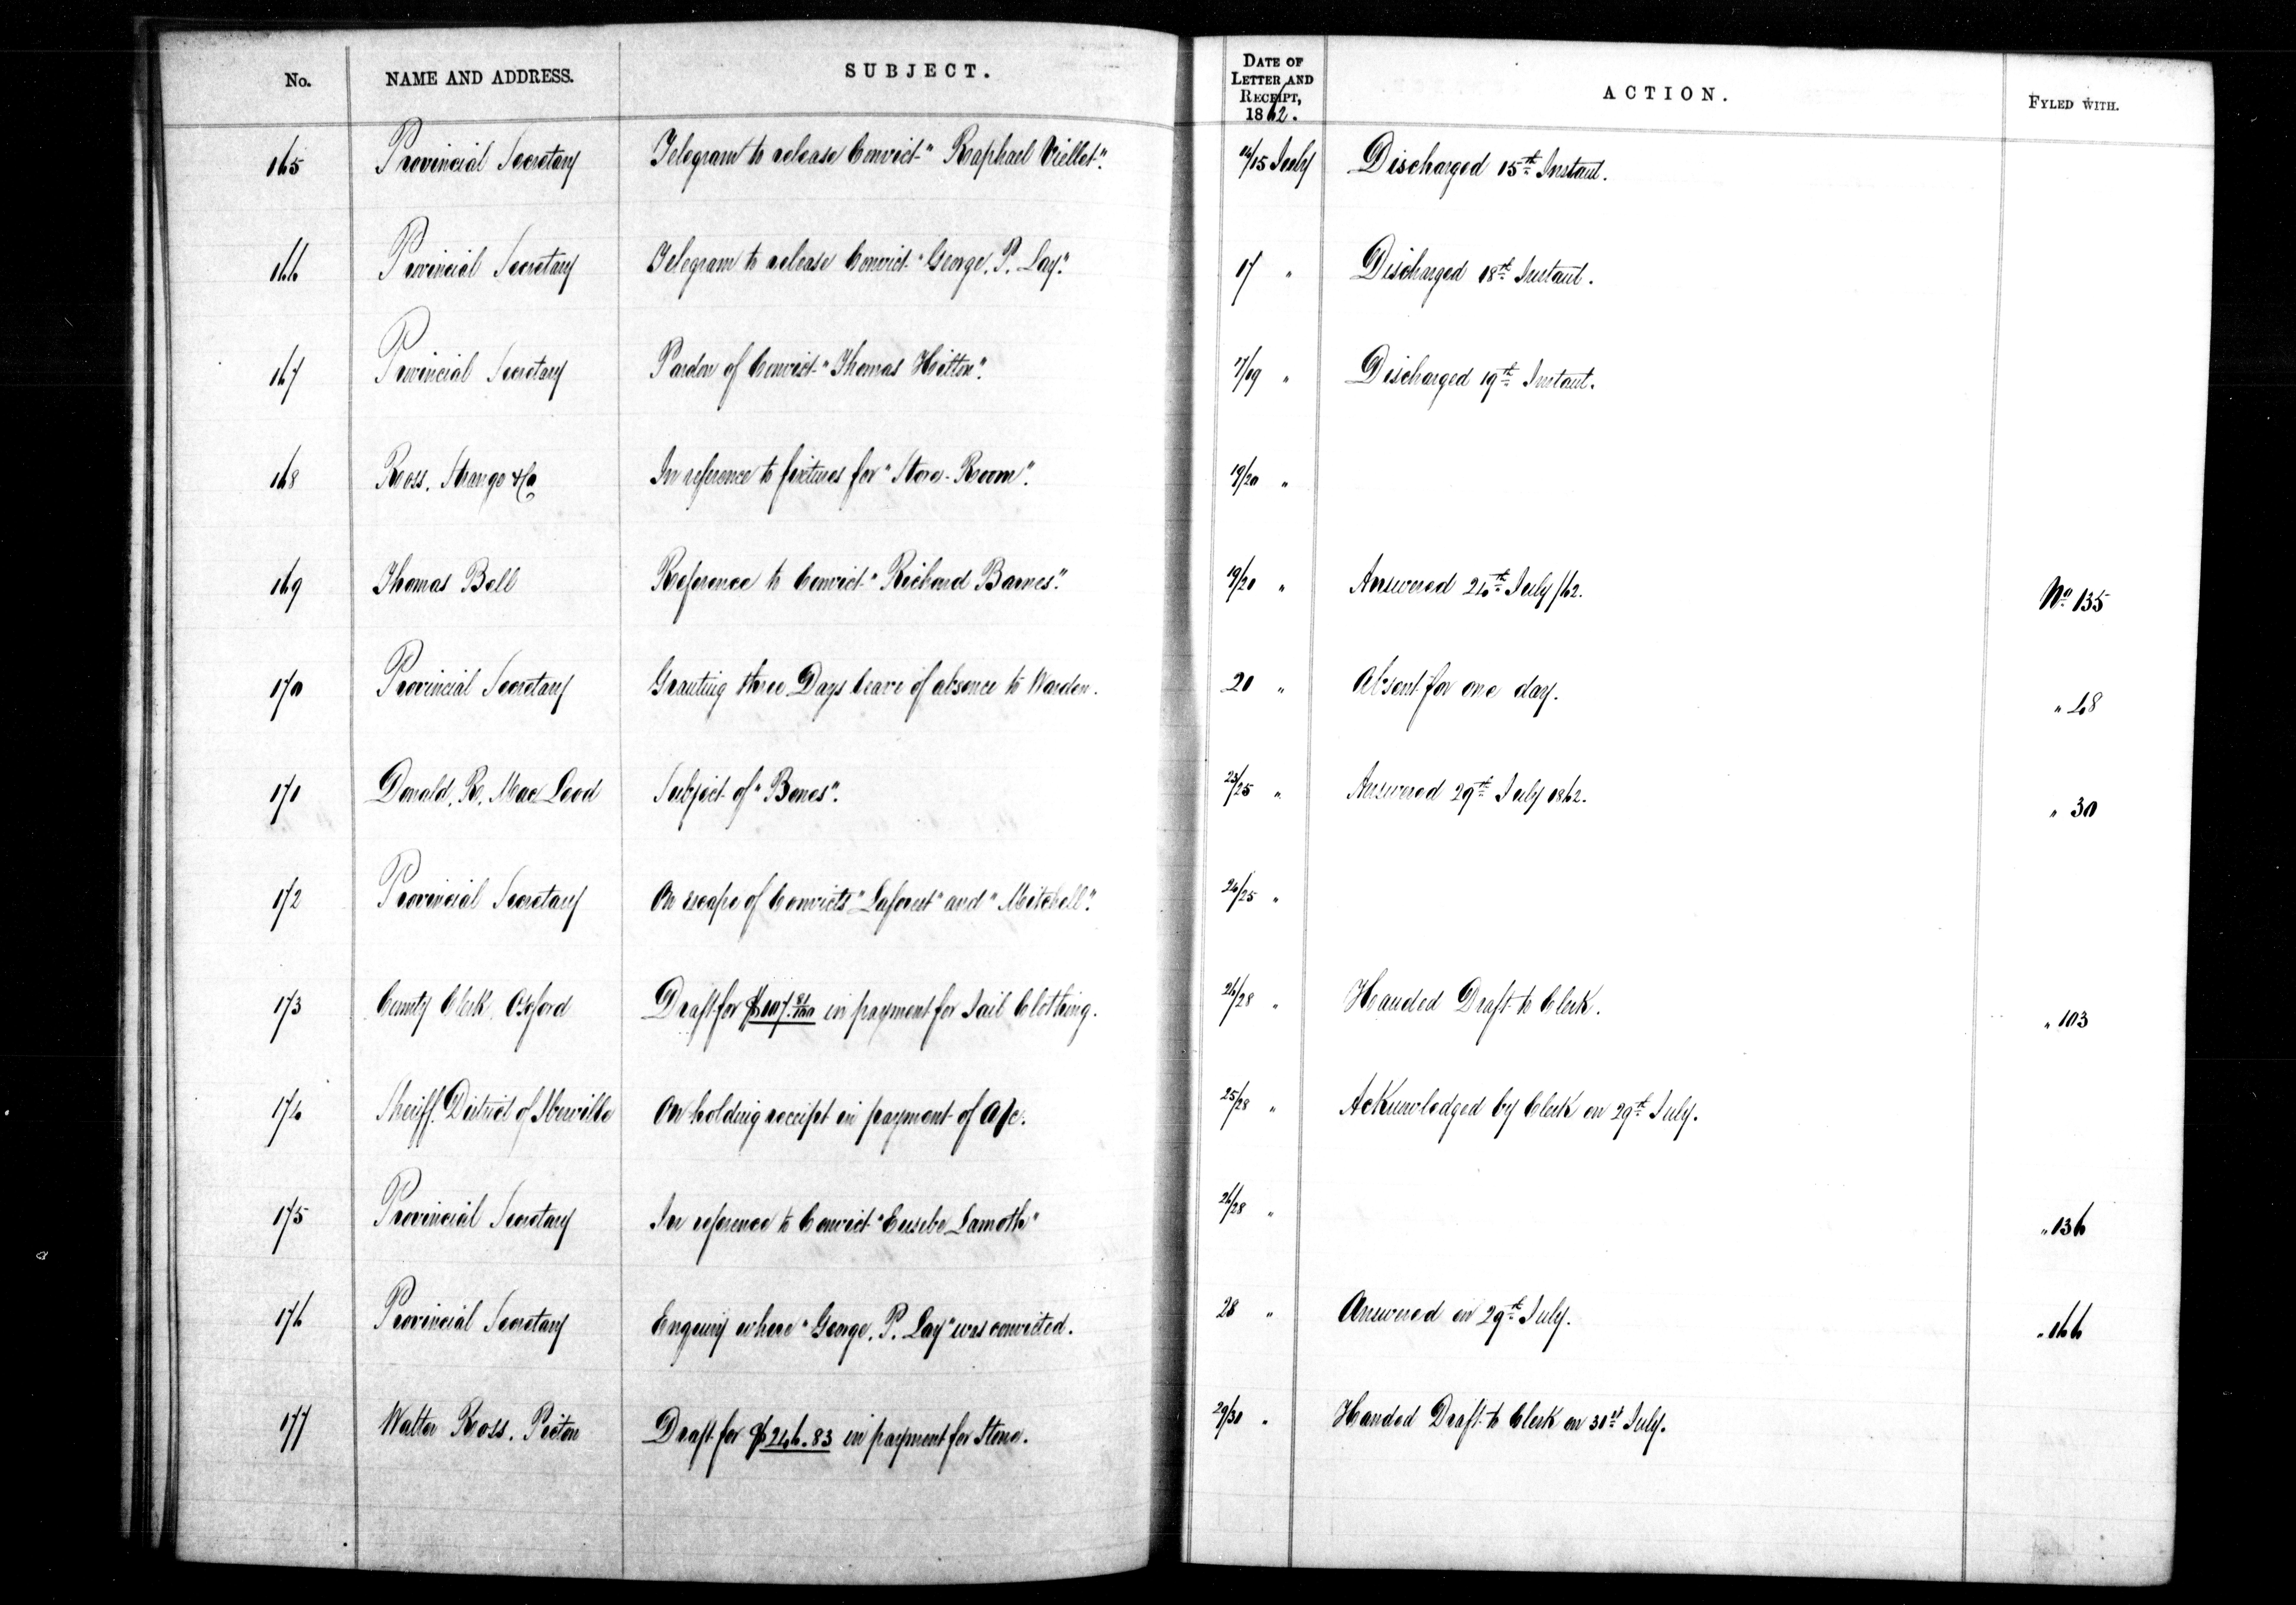 No. NAME AND ADDRESS. SUBJECT. DATE OF LETTER AND RECEIPT, 1862. ACTION. FYLED WITH.
165 Provincial Secretary Telegram to release Convict "Raphael Viellet". 14/15 July Discharged 15th Instant.
166 Provincial Secretary Telegram to release Convict "George. P. Lay". 17 " Discharged 18th Instant.
167 Provincial Secretary Pardon of Convict "Thomas Hilton". 17/19 " Discharged 19th Instant.
168 Ross. Strange & Co In reference to fixtures for "Store-Room". 19/20 "
169 Thomas Bell Reference to Convict "Richard Barnes". 19/20 " Answered 24th July/62. No 135
170 Provincial Secretary Granting three Days leave of absence to Warden. 20 " Absent for one day. " 48
171 Donald. R. MacLeod Subject of "Bones". 23/25 " Answered 29th July 1862. " 30
172 Provincial Secretary On escape of Convicts "Laforest" and "Mitchell". 24/25 "
173 County Clerk, Oxford Draft for $107.81/100 in payment for Jail Clothing. 26/28 " Handed Draft to Clerk. " 103
174 Sheriff. District of Iberville On holding receipt in payment of A/c. 25/28 " Acknowledged by Clerk on 29th July.
175 Provincial Secretary In reference to Convict "Eusebe Lamoth" 26/28 " " 136
176 Provincial Secretary Enquiry where "George. P. Lay" was convicted. 28 " Answered on 29th July. " 166
177 Walter Ross. Picton Draft for $246.83 in payment for Stone. 29/30 " Handed Draft to Clerk on 30st July.